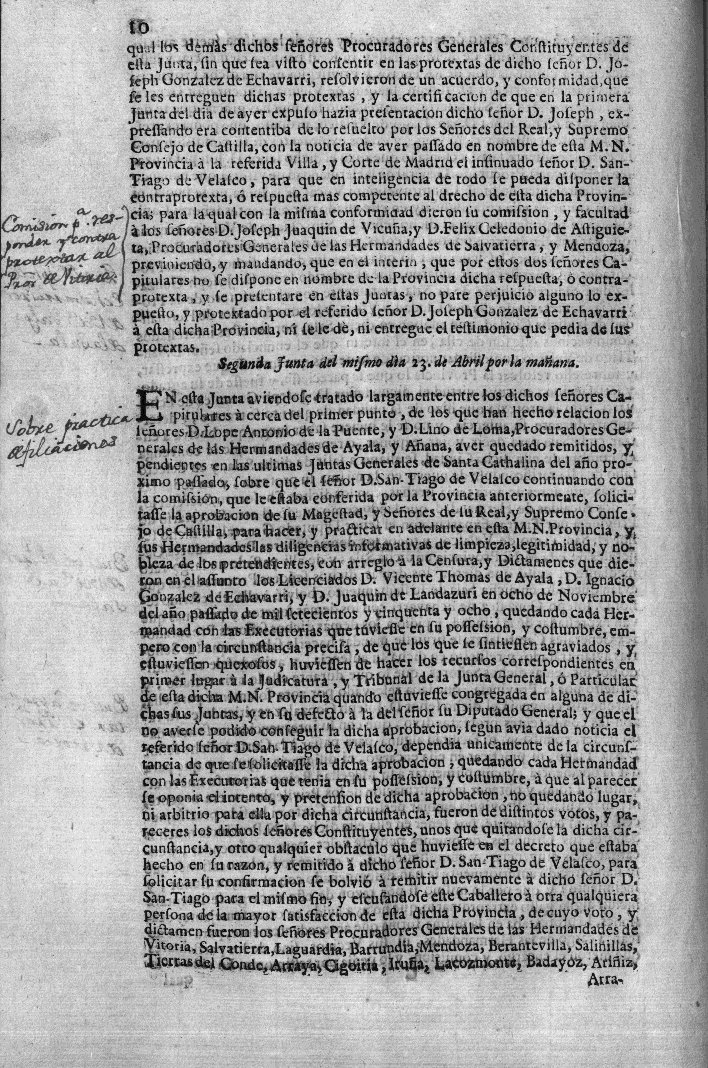 10
qual los demás dichos señores Procuradores Generales Constituyentes de
esta Junta, sin que sea visto consentir en las protextas de dicho señor D. Jo-
seph Gonzalez de Echavarri, resolvieron de un acuerdo, y conformidad, que
se les entreguen dichas protextas, y la certificacion de que en la primera
Junta del dia de ayer expuso hazia presentacion dicho señor D. Joseph, ex-
pressando era contentiba de lo resuelto por los Señores del Real, y Supremo
Consejo de Castilla, con la noticia de aver passado en nombre de esta M. N.
Provincia à la referida Villa, y Corte de Madrid el insinuado señor D. San-
Tiago de Velasco, para que en inteligencia de todo se pueda disponer la
contraprotexta, ó respuesta mas competente al drecho de esta dicha Provin-
cia; para la qual con la misma conformidad dieron su comission, y facultad
à los señores D. Joseph Juaquin de Vicuña, y D. Felix Celedonio de Astiguie-
ta, Procuradores Generales de las Hermandades de Salvatierra, y Mendoza,
previniendo, y mandando, que en el interin, que por estos dos señores Ca-
pitulares no se dispone en nombre de la Provincia dicha respuesta, ò contra-
protexta, y se presentare en estas Juntas, no pare perjuicio alguno lo ex-
puesto, y protextado por el referido señor D. Joseph Gonzalez de Echavarri
à esta dicha Provincia, ni se le dè, ni entregue el testimonio que pedia de sus
protextas.
Comision pª res-
ponder y contra
protextar al
Pror de Vitoria.
Segunda Junta del mismo dia 23. de Abril por la mañana.
EN esta Junta aviendose tratado largamente entre los dichos señores Ca-
pitulares à cerca del primer punto, de los que han hecho relacion los
señores D. Lope Antonio de la Puente, y D. Lino de Loma, Procuradores Ge-
nerales de las Hermandades de Ayala, y Añana, aver quedado remitidos, y
pendientes en las ultimas Juntas Generales de Santa Cathalina del año pro-
ximo passado, sobre que el señor D. San-Tiago de Velasco continuando con
la comission, que le estaba conferida por la Provincia anteriormente, solici-
tasse la aprobacion de su Magestad, y Señores de su Real, y Supremo Conse-
jo de Castilla, para hacer, y practicar en adelante en esta M.N. Provincia, y
sus Hermandades las diligencias informativas de limpieza, legitimidad, y no-
bleza de los pretendientes, con arreglo à la Censura, y Dictamenes que die-
ron en el assunto los Licenciados D. Vicente Thomas de Ayala, D. Ignacio
Gonzalez de Echavarri, y D. Juaquin de Landazuri en ocho de Noviembre
del año passado de mil setecientos y cinquenta y ocho, quedando cada Her-
mandad con las Executorias que tuviesse en su possession, y costumbre, em-
pero con la circunstancia precisa, de que los que se sintiessen agraviados, y
estuviessen quexosos, huviessen de hacer los recursos correspondientes en
primer lugar à la Judicatura, y Tribunal de la Junta General, ó Particular
de esta dicha M. N. Provincia quando estuviesse congregada en alguna de di-
chas sus Juntas, y en su defecto à la del señor su Diputado General; y que el
no averse podido conseguir la dicha aprobacion, segun avia dado noticia el
referido señor D. San-Tiago de Velasco, dependia unicamente de la circuns-
tancia de que se solicitasse la dicha aprobacion, quedando cada Hermandad
con las Executorias que tenia en su possession, y costumbre, à que al parecer
se oponia el intento, y pretension de dicha aprobacion, no quedando lugar,
ni arbitrio para ella por dicha circunstancia, fueron de distintos votos, y pa-
receres los dichos señores Constituyentes, unos que quitandose la dicha cir-
cunstancia, y otro qualquier obstaculo que huviesse en el decreto que estaba
hecho en su razon, y remitido à dicho señor D. San-Tiago de Velasco, para
solicitar su confirmacion se bolviò à remitir nuevamente à dicho señor D.
San-Tiago para el mismo fin, y escusandose este Caballero à otra qualquiera
persona de la mayor satisfaccion de esta dicha Provincia, de cuyo voto, y
dictamen fueron los señores Procuradores Generales de las Hermandades de
Vitoria, Salvatierra, Laguardia, Barrundia, Mendoza, Berantevilla, Salinillas,
Tierras del Conde, Arraya, Cigoitia, Iruña, Lacozmonte, Badayoz, Ariñiz,
Arra-
Sobre practica
de filiaciones